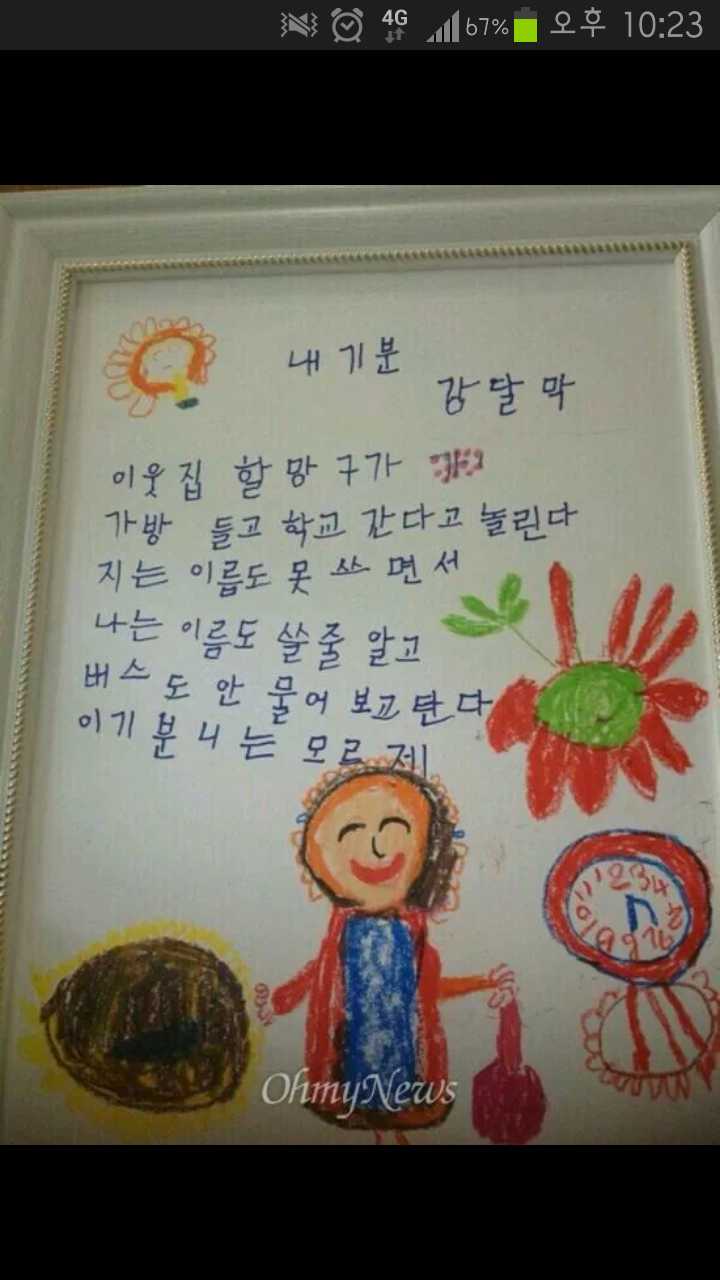 4G 67% 오후 10:23
내 기분
강달막
이웃집 할망구가
가방 들고 학교 간다고 놀린다
지는 이름도 못 쓰면서
나는 이름도 쓸줄 알고
버스도 안 물어 보고 탄다
이기분 니는 모르제
11 12 3 4
OhmyNews